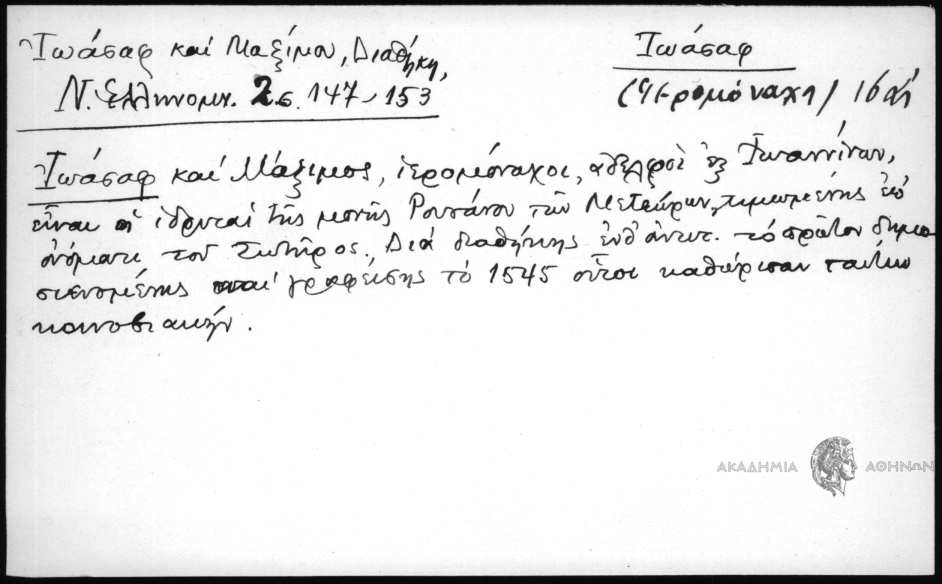 Ἰωάσαφ καί Μαξίμου, Διαθήκη,
Ν. Ἑλληνομν. 2 σ. 147-153
Ἰωάσαφ
(Ἱερομόναχη) 16 αἰ
Ἰωάσαφ καί Μάξιμος, ἱερομόναχοι, ἀδελφοί ἐξ Ἰωαννίνων,
εἶναι οἱ ἱδρυταί τῆς μονῆς Ρουσάνου τῶν Μετεώρων, τιμωμένης ἐπ'
ὀνόματι τοῦ Σωτῆρος. Διά διαθήκης ἐνθ' ἀνωτ. τό πρῶτον δημο-
σιευομένης καί γραφείσης τό 1545 οὗτοι καθώρισαν ταύτην
κοινοβιακήν.
ΑΚΑΔΗΜΙΑ ΑΘΗΝΩΝ